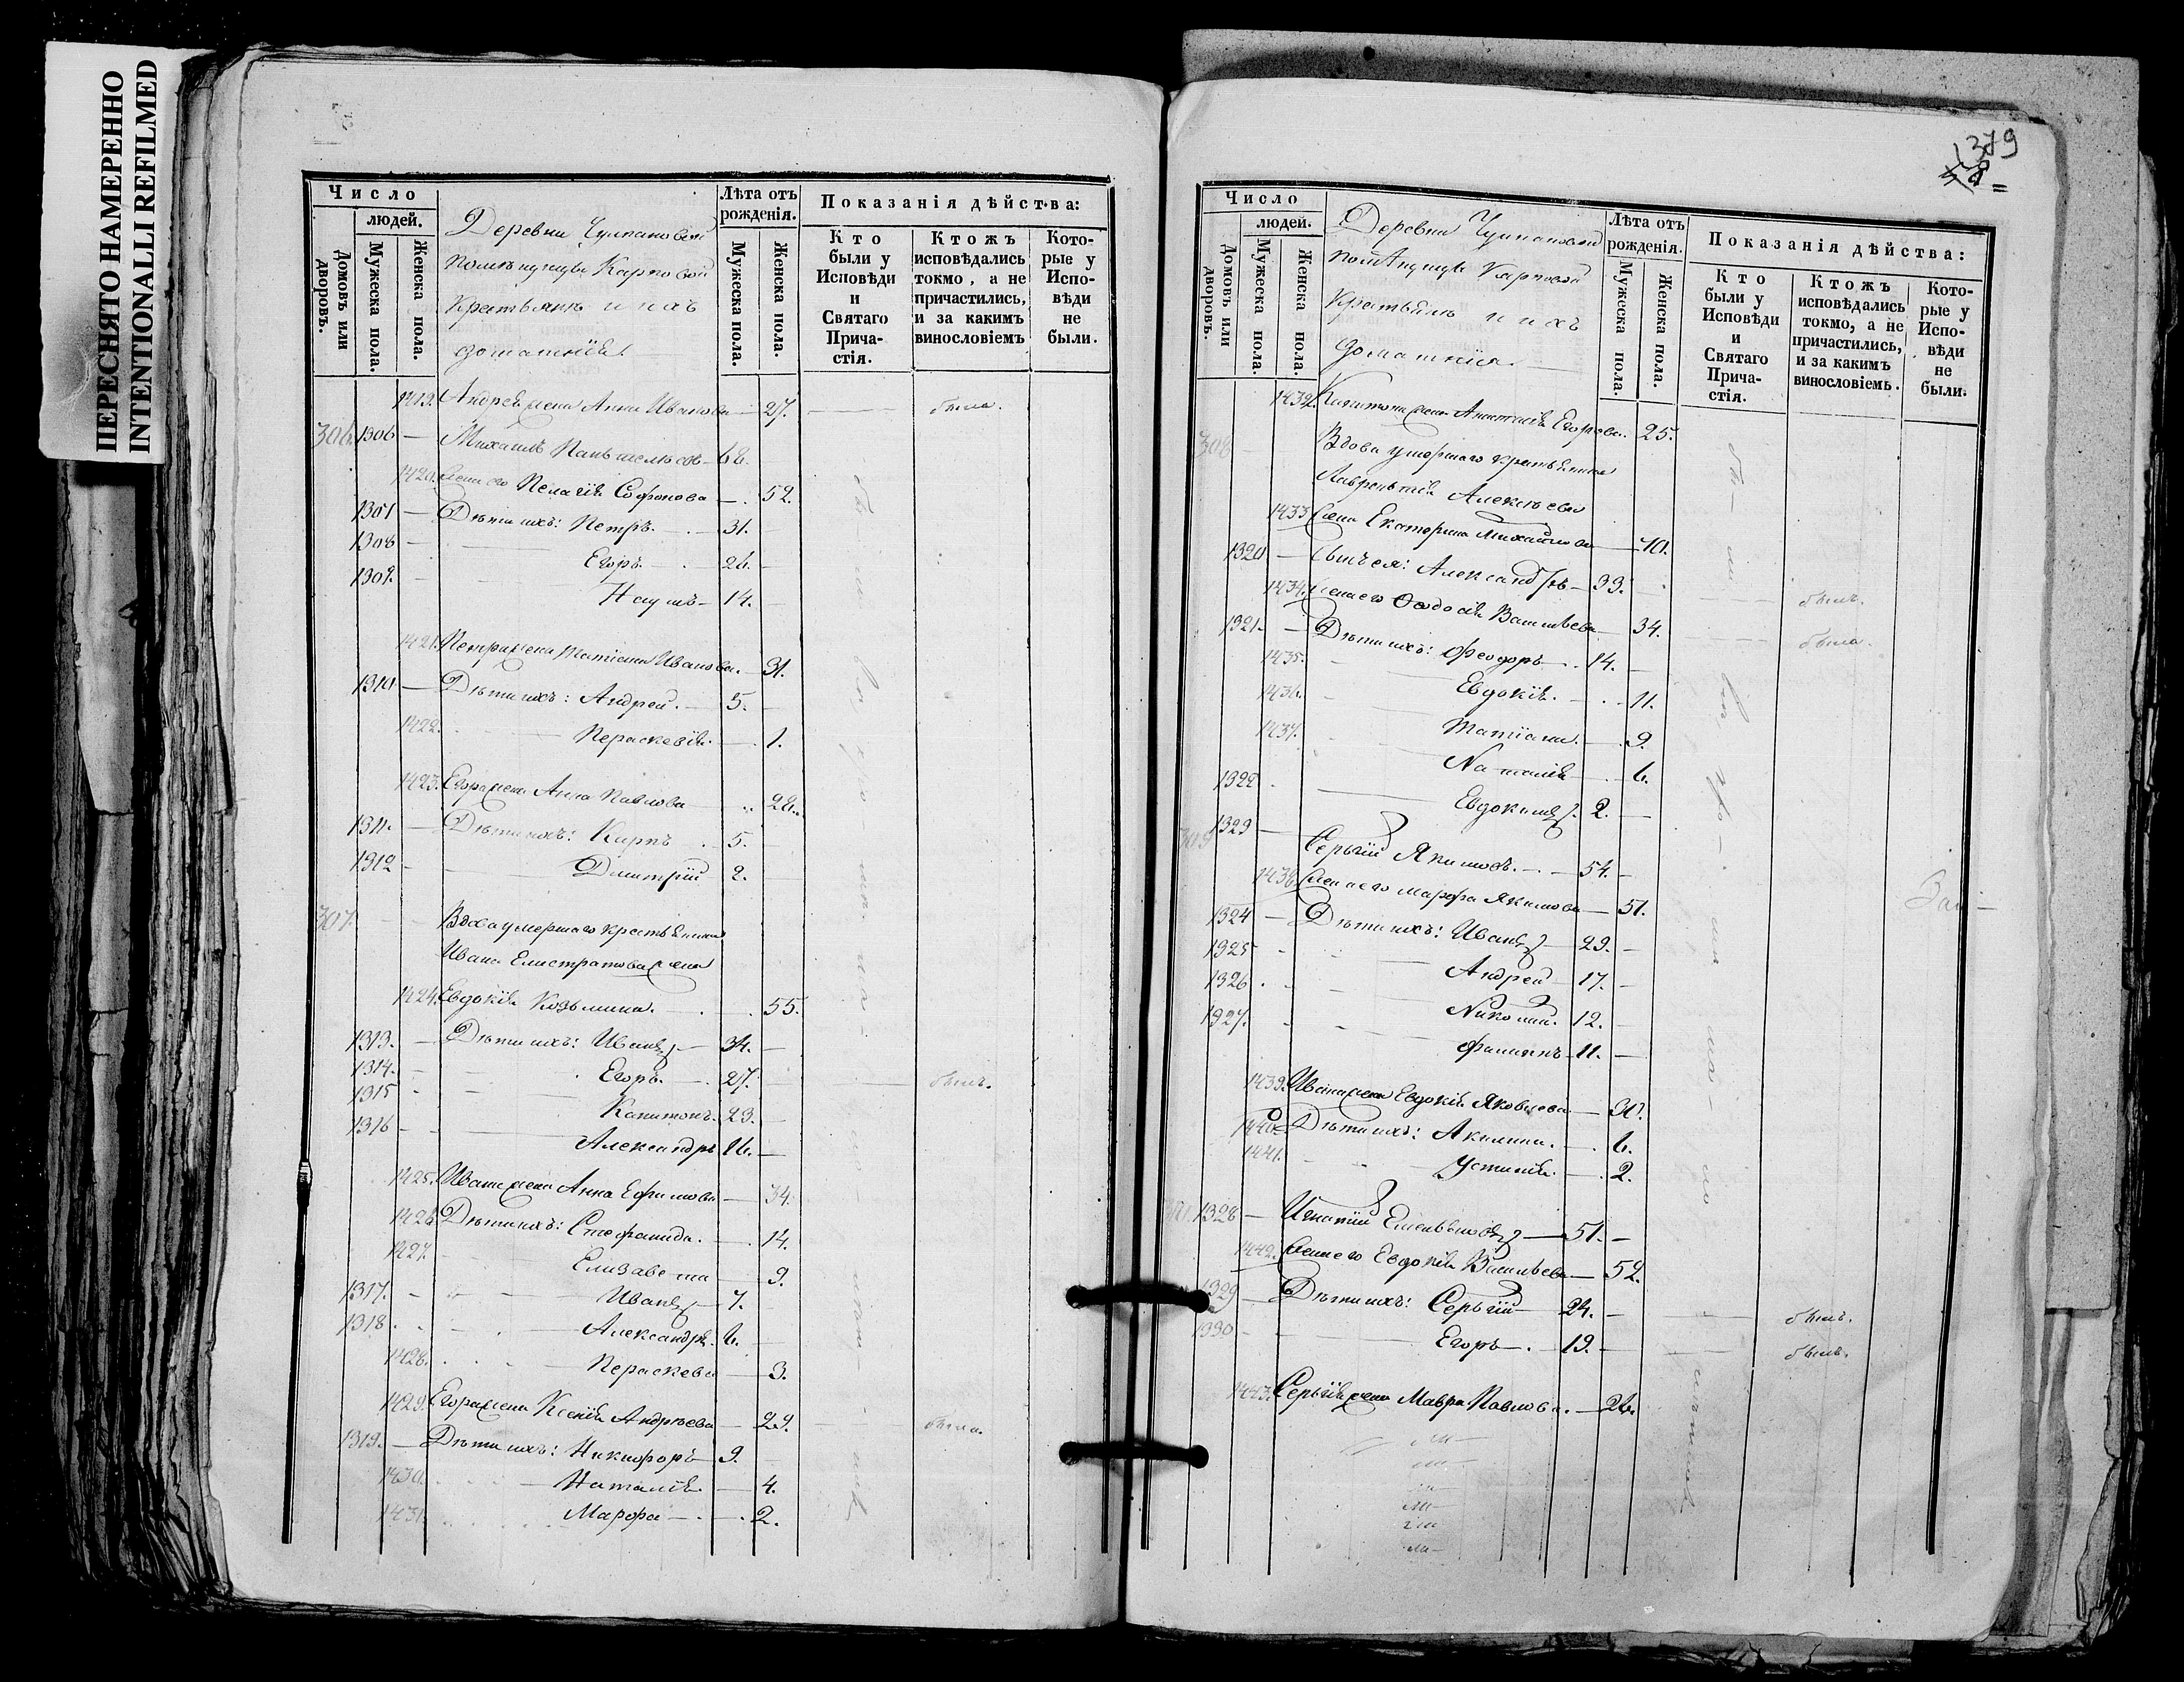 ПЕРЕСНЯТО НАМЕРЕННО
INTENTIONALLI REFILMED
Число
людей.
Домовъ или дворовъ.
Мужеска пола.
Женска пола.
Деревни Чулпановой
помѣщицы Карповой
Крестьянъ и ихъ
домашніи.
Лѣта отъ рожденія.
Мужеска пола.
Женска пола.
Показанія дѣйства:
Кто были у Исповѣди и Святаго Причастія.
Ктожъ исповѣдались токмо, а не причастились, и за какимъ винословіемъ
Которые у Исповѣди не были.
1419. Андрея жена Анна Иванова — 27. была.
306. 1306 — Михаилъ — 68.
1420. Жена его Пелагія Софонова — 52.
1307 — Дѣти ихъ: Петръ. — 31.
1308 — Егоръ. — 26. —
1309. — Наумъ — 14. —
1421. Петра жена Татіана Иванова. — 31.
1310 — Дѣти ихъ: Андрей. — 5. —
1422. — Параскевія. — 1.
1423. Егора жена Анна Павлова — 28.
1311. — Дѣти ихъ: Карпъ — 5.
1312 — Димитрій 2. —
307. Вдова умершаго крестьянина
Ивана Елистратова жена
1424. Евдокія Козьмина. — 55.
1313. — Дѣти ихъ: Иванъ — 34. —
1314. — Егоръ. — 27. — былъ.
1315 — Капитонъ. 23. —
1316 — Александръ 16. —
1425. Ивана жена Анна Ефимова — 34.
1426 Дѣти ихъ: Стефанида. — 14.
1427. Елизавета — 9.
1317. — Иванъ — 7.
1318 — Александръ. 6. —
1428. — Параскева — 3.
1429. Егора жена Ксенія Андреева — 29. была.
1319. — Дѣти ихъ: Никифоръ — 9.
1430. — Наталія. — 4.
1431. Марфа — 2.
1379
Число
людей.
Домовъ или дворовъ.
Мужеска пола.
Женска пола.
Деревни Чулпановой
помѣщицы Карповой
Крестьянъ и ихъ
домашніи.
Лѣта отъ рожденія.
Мужеска пола.
Женска пола.
Показанія дѣйства:
Кто были у Исповѣди и Святаго Причастія.
Ктожъ исповѣдались токмо, а не причастились, и за какимъ винословіемъ.
Которые у Исповѣди не были.
1432. Капитона жена Анастасія Егорова. 25.
308 Вдова умершаго крестьянина
Лаврентія Алексѣева
1433 жена Екатерина Михайлова — 70.
1320 — Сынъ ея: Александръ — 33. былъ.
1434. Жена его Ѳедосія Васильева — 34. была.
1321. — Дѣти ихъ: Феодоръ — 14. —
1435. Евдокія. — 11.
1436. Татіана. — 9.
1437. Наталія — 6.
1322 Евдокимъ. 2. —
309 1323 — Сергій Якимовъ. — 54. —
1438 Жена его Марфа Якимова — 51.
1324 — Дѣти ихъ: Иванъ — 29. —
1325 Андрей 17. —
1326 Николай. 12. —
1327. Филиппъ — 11. —
1439. Ивана жена Евдокія Яковлева — 30.
1440. Дѣти ихъ: Акилина. — 6.
1441. Устинія. — 2.
1328 — Игнатій Емельяновъ — 51. —
1442. Жена его Евдокія Васильева — 52.
1329 — Дѣти ихъ: Сергій — 24. — былъ.
1330 — Егоръ — 19. — былъ.
1443. Сергія жена Мавра Павлова. — 26.